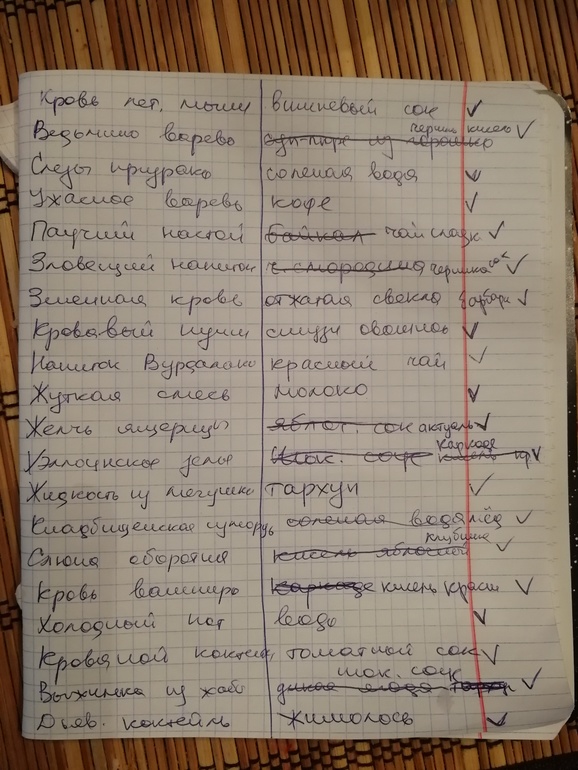 Кровь лет. мыши вишневый сок
Ведьмино варево суп-пюре из горошка черник кисель
Слезы призрака соленая вода
Ужасное варево кофе
Паучий настой байкал чай сладк
Зловещий напиток ч. смородина черника сок
Змеиная кровь отжатая свекла барбар
Кровавый пунш смузи овощной
Напиток Вурдалака красный чай
Жуткая смесь молоко
Желчь ящерицы яблоч. сок актуаль
Хэллоуинское зелье шок. соус каркаде кисель кр
Жидкость из лягушки тархун
Кладбищенская изморозь соленая вода лёд
Слюна оборотня кисель яблочный клубника
Кровь вампира каркаде кисель красн
Холодный пот вода
Кровяной коктейль томатный сок
шок. соус
Выжимка из жаб дикая ягода
Дьяв. коктейль жимолость